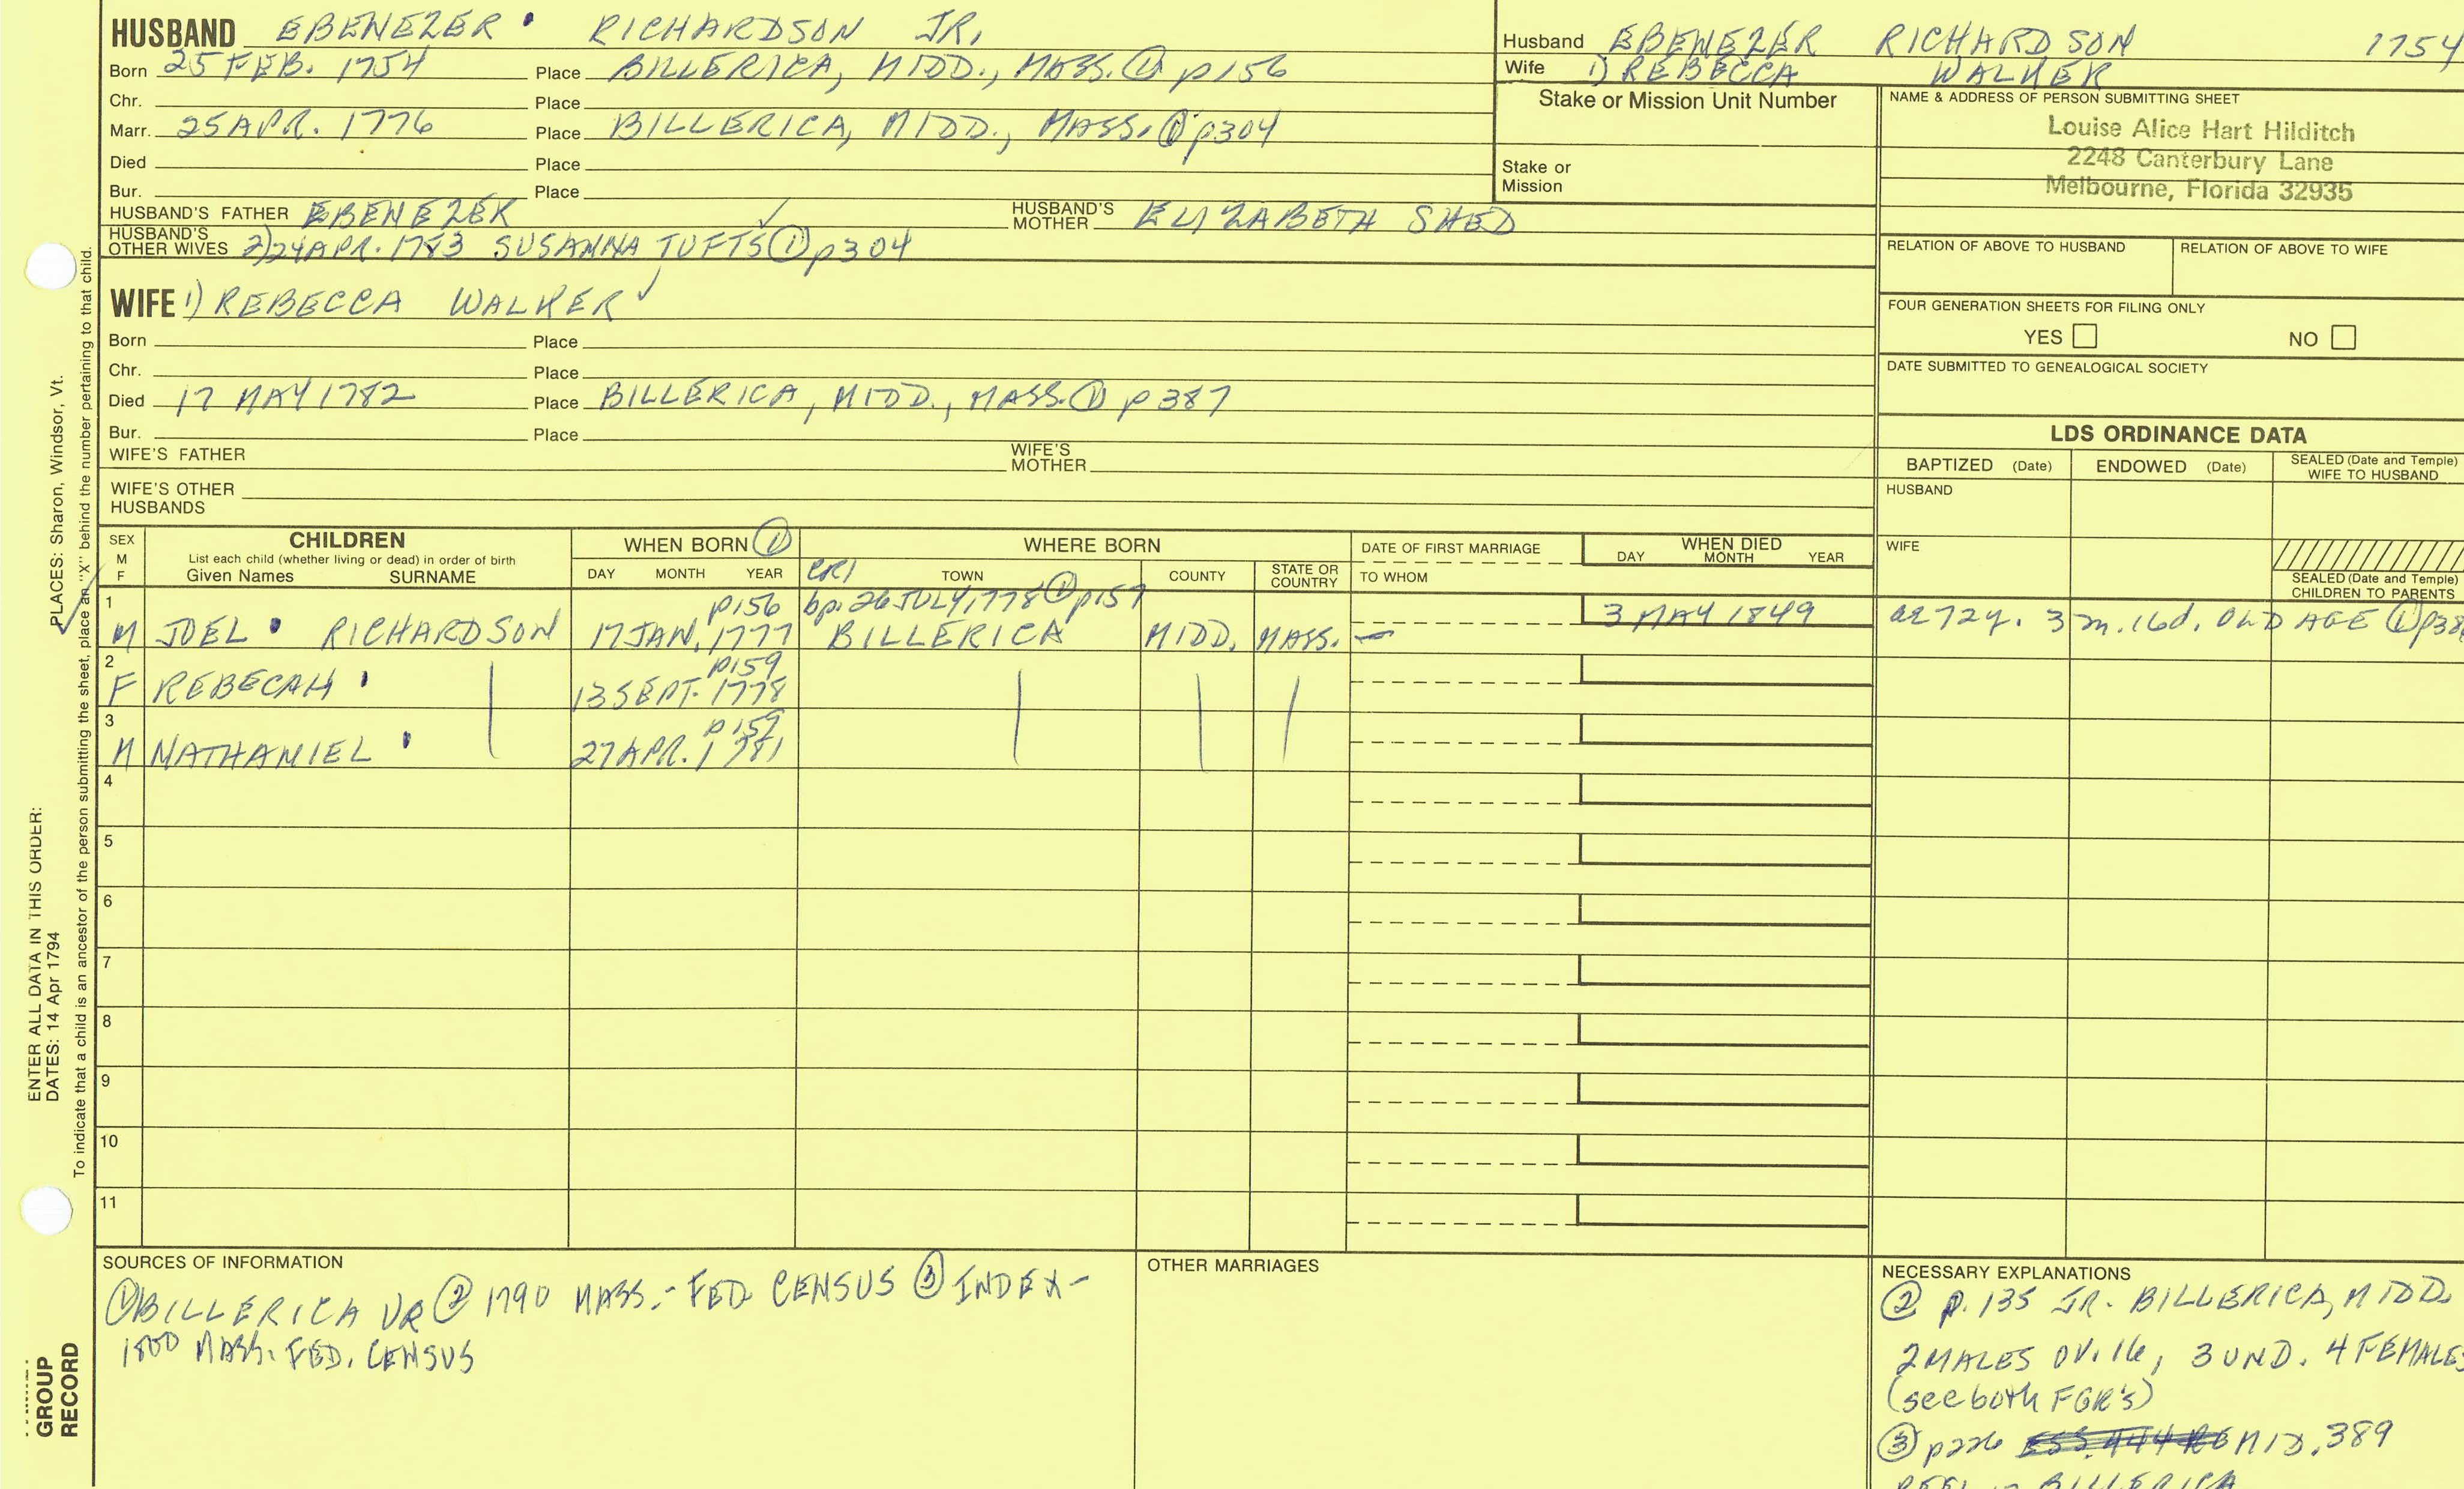 HUSBAND EBENEZER RICHARDSON JR.
Born 25 FEB. 1754 Place BILLERICA, MIDD., MASS. ① p156
Chr. Place
Marr. 25 APR. 1776 Place BILLERICA, MIDD., MASS. ① p304
Died Place
Bur. Place
HUSBAND'S FATHER EBENEZER HUSBAND'S MOTHER ELIZABETH SHED
HUSBAND'S OTHER WIVES 2) 24 APR. 1783 SUSANNA TUFTS ① p304
WIFE 1) REBECCA WALKER
Born Place
Chr. Place
Died 17 MAY 1782 Place BILLERICA, MIDD., MASS. ① p387
Bur. Place
WIFE'S FATHER WIFE'S MOTHER
WIFE'S OTHER HUSBANDS
Husband EBENEZER RICHARDSON 1754
Wife 1) REBECCA WALKER
Stake or Mission Unit Number
Stake or Mission
NAME & ADDRESS OF PERSON SUBMITTING SHEET
Louise Alice Hart Hilditch
2248 Canterbury Lane
Melbourne, Florida 32935
RELATION OF ABOVE TO HUSBAND RELATION OF ABOVE TO WIFE
FOUR GENERATION SHEETS FOR FILING ONLY
YES NO
DATE SUBMITTED TO GENEALOGICAL SOCIETY
LDS ORDINANCE DATA
BAPTIZED (Date) ENDOWED (Date) SEALED (Date and Temple) WIFE TO HUSBAND
HUSBAND
WIFE
SEALED (Date and Temple) CHILDREN TO PARENTS
SEX M F CHILDREN WHEN BORN ① WHERE BORN DATE OF FIRST MARRIAGE WHEN DIED
List each child (whether living or dead) in order of birth
Given Names SURNAME DAY MONTH YEAR CR1 TOWN COUNTY STATE OR COUNTRY TO WHOM DAY MONTH YEAR
1 p156 bp. 26 JULY, 1778 ① p157
M JOEL RICHARDSON 17 JAN. 1777 BILLERICA MIDD. MASS. — 3 MAY 1849 ae 72y. 3m. 16d. OLD AGE ① p38
2 p159
F REBECAH 13 SEPT. 1778
3 p159
M NATHANIEL 27 APR. 1781
4
5
6
7
8
9
10
11
SOURCES OF INFORMATION
① BILLERICA VR ② 1790 MASS.- FED. CENSUS ③ INDEX-
1800 MASS. FED. CENSUS
OTHER MARRIAGES
NECESSARY EXPLANATIONS
② p. 135 JR. BILLERICA, MIDD.
2 MALES OV. 16, 3 UND. 4 FEMALES
(see both FGR's)
③ p226 MID. 389
BILLERICA
ENTER ALL DATA IN THIS ORDER:
DATES: 14 Apr 1794 PLACES: Sharon, Windsor, Vt.
To indicate that a child is an ancestor of the person submitting the sheet, place an "X" behind the number pertaining to that child.
GROUP
RECORD